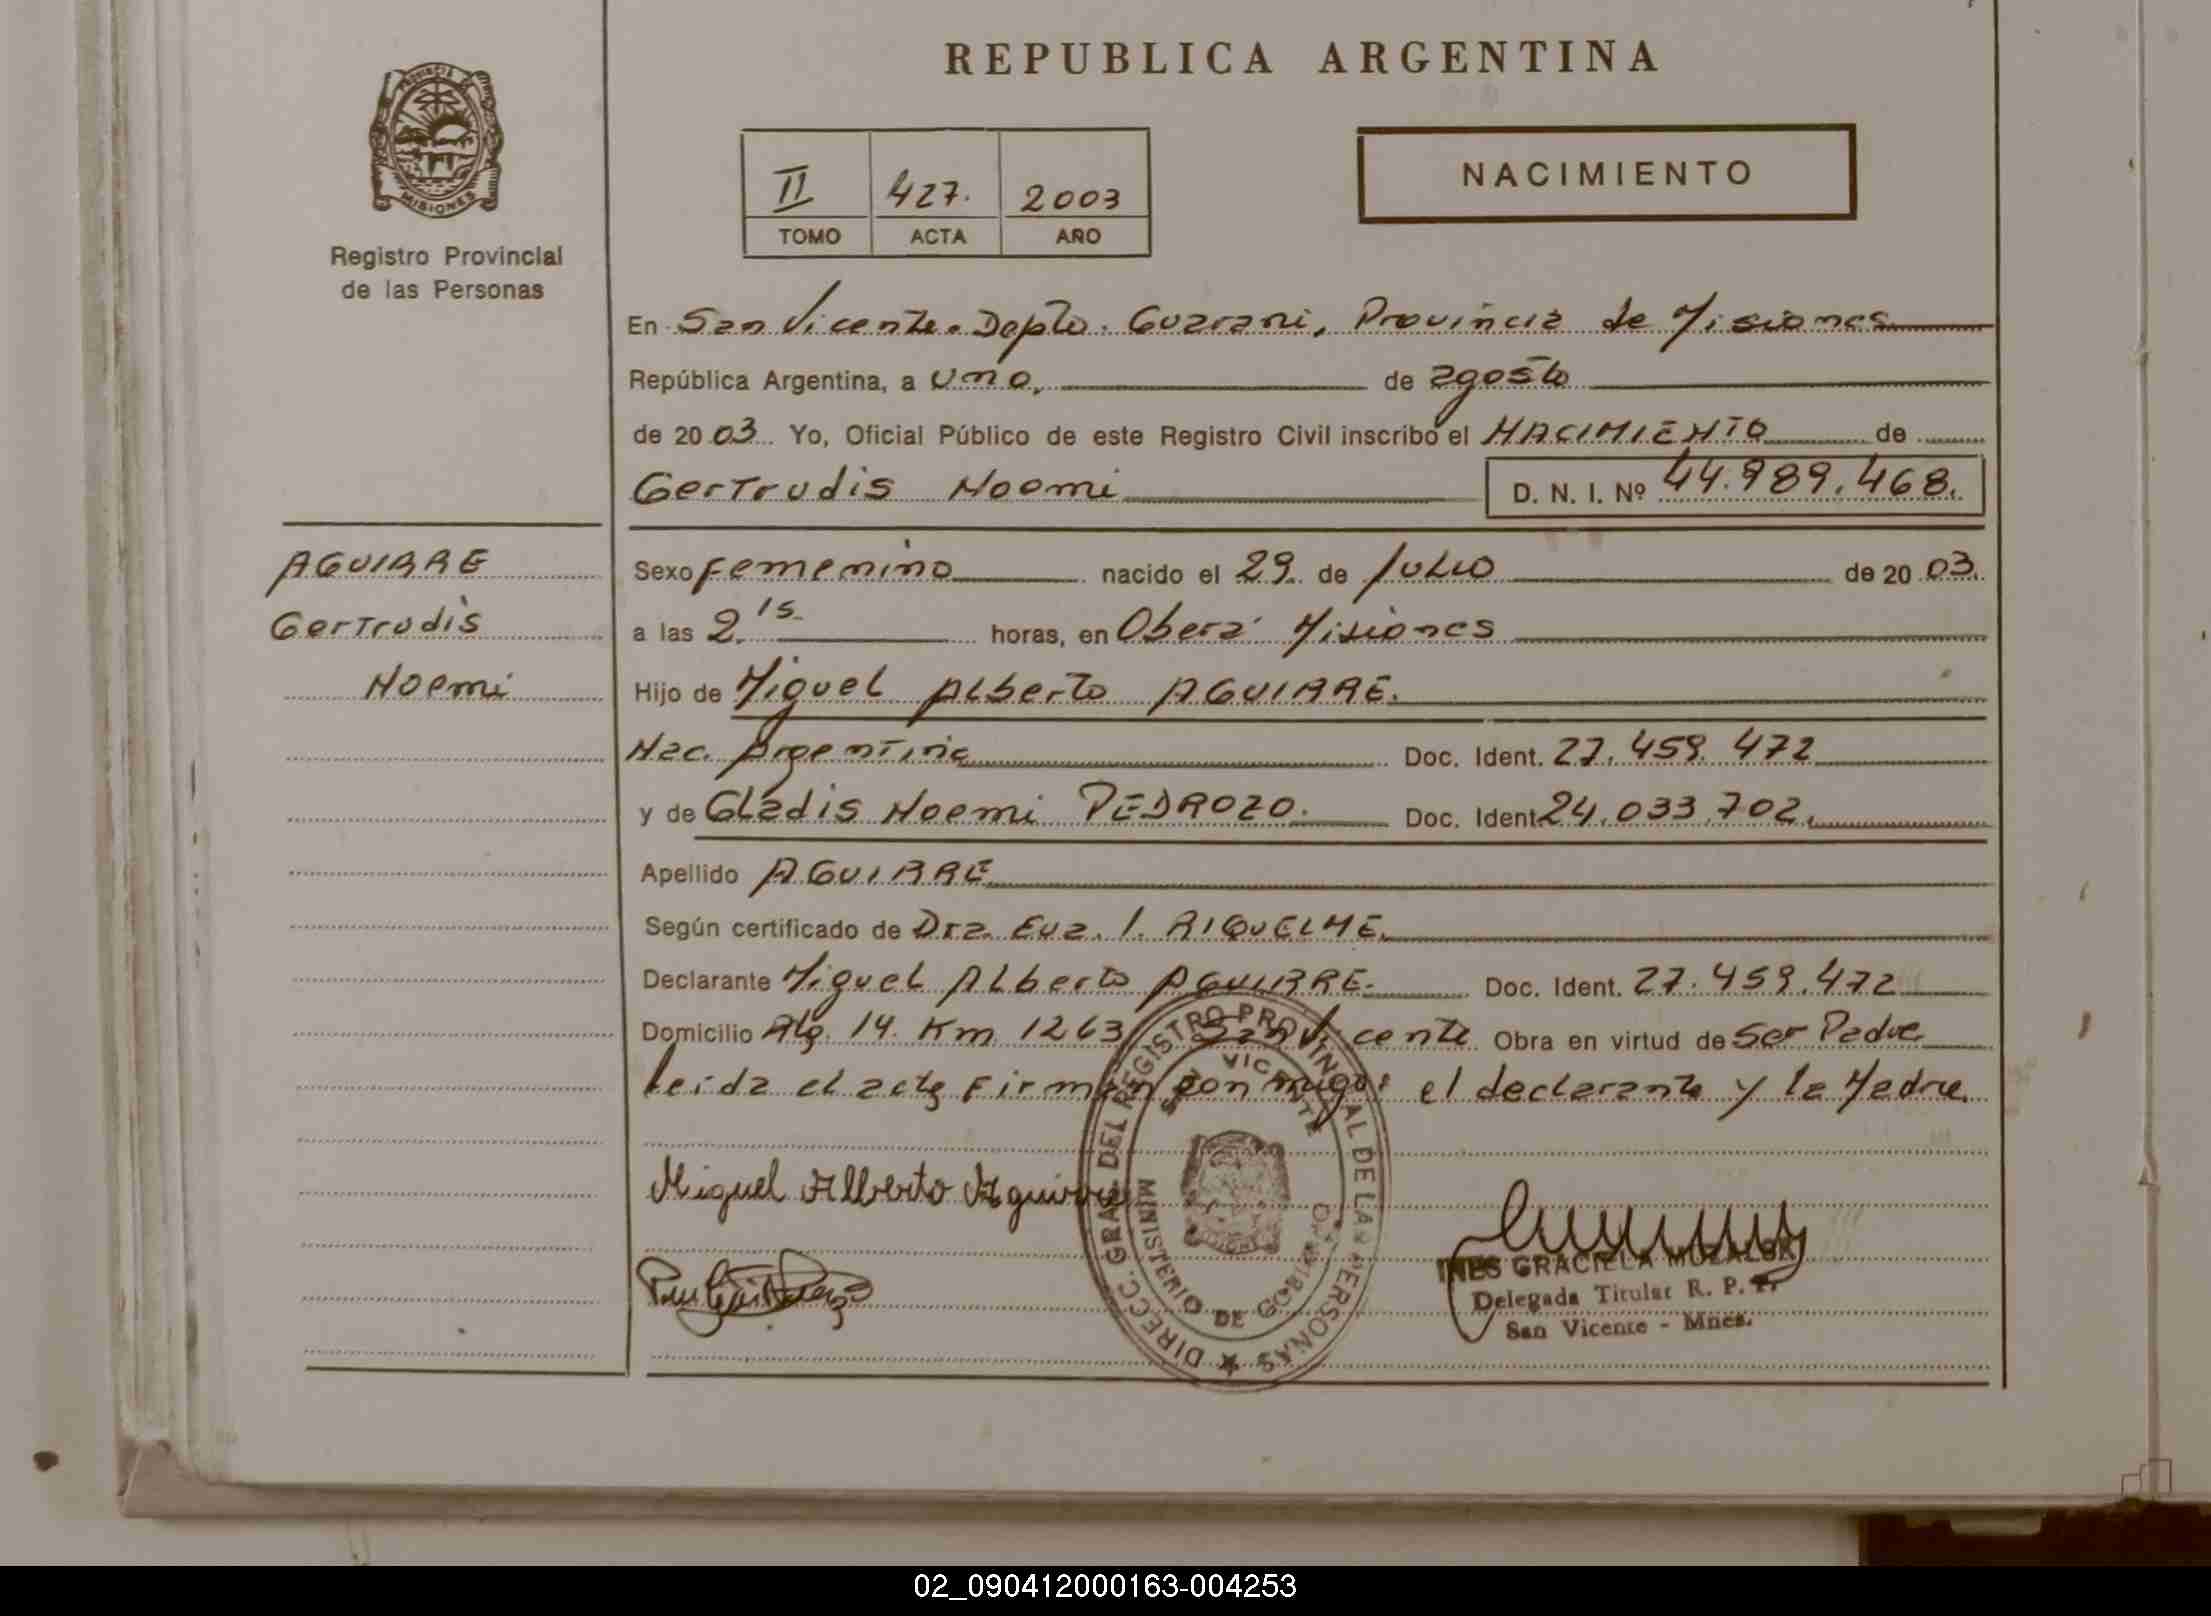 REPUBLICA ARGENTINA
PROVINCIA DE
MISIONES
Registro Provincial
de las Personas
II 427. 2003
TOMO ACTA AÑO
NACIMIENTO
En San Vicente. Depto. Guarani, Provincia de Misiones
República Argentina, a uno, de agosto
de 2003 Yo, Oficial Público de este Registro Civil inscribo el NACIMIENTO de
Gertrudis Noemi D. N. I. Nº 44.989.468.
AGUIRRE
Gertrudis
Noemi
Sexo femenino nacido el 29 de Julio de 2003.
a las 2.15 horas, en Oberá Misiones
Hijo de Miguel Alberto AGUIRRE.
Nac. Argentina Doc. Ident. 27.459.472
y de Gladis Noemi PEDROZO. Doc. Ident. 24.033.702.
Apellido AGUIRRE
Según certificado de Dra. Eva. I. RIQUELME.
Declarante Miguel Alberto AGUIRRE. Doc. Ident. 27.459.472
Domicilio Km 1263 San Vicente Obra en virtud de Ser Padre
leida el acta Firman con migo: el declarante y la Madre.
Miguel Alberto Aguirre
DIRECC. GRAL. DEL REGISTRO PROVINCIAL DE LAS PERSONAS
SAN VICENTE
MINISTERIO DE GOBIERNO
INES GRACIELA
Delegada Titular R. P. P.
San Vicente - Mnes.
02_090412000163-004253